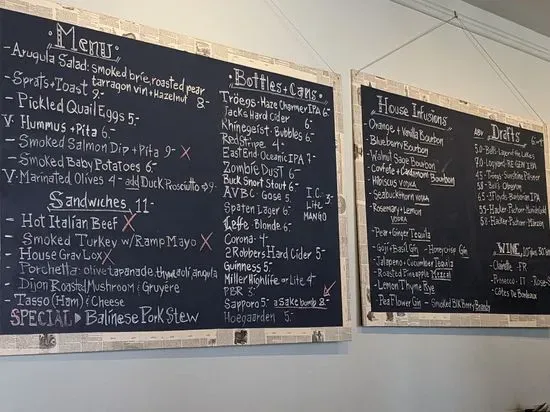 Menu
- Arugula Salad: smoked brie, roasted pear
tarragon vin + hazelnut 8-
- Sprats + Toast 9-
- Pickled Quail Eggs 5-
V. Hummus + Pita 6.-
- Smoked Salmon Dip + Pita 9- X
- Smoked Baby Potatoes 6-
V. Marinated Olives 4- add Duck Prosciutto → 9-
Sandwiches 11-
- Hot Italian Beef X
- Smoked Turkey w/ Ramp Mayo X
- House Grav Lox X
- Porchetta: olive tapanade, thyme aioli, arugula
- Dijon Roasted Mushroom & Gruyére
- Tasso (Ham) & Cheese
SPECIAL ▶ Balinese Pork Stew
Bottles + Cans
Tröegs - Haze Charmer IPA 6-
Jacks Hard Cider 6-
Rhinegeist - Bubbles 6-
Red Stripe 4-
East End Oceanic IPA 7-
Zombie Dust 6-
Buck Snort Stout 6-
AVBC - Gose 5-
I.C. Lite MANGO 3-
Spaten Lager 6-
Leffe - Blonde 6-
Corona 4-
2 Robbers Hard Cider 5-
Guinness 5-
Miller Highlife or Lite 4-
PBR 3-
Sapporo 5- a sake bomb 8-
Hoegaarden 5-
House Infusions
- Orange + Vanilla Bourbon
- Blueberry Bourbon
- Walnut Sage Bourbon
- Cowtale / Caramel Bourbon
- Hibiscus vodka
- Seabuckthorn vodka
- Rosemary + Lemon
vodka
- Pear + Ginger Tequila
- Goji + Basil Gin - Honeycrisp Gin
- Jalapeno + Cucumber Tequila
- Roasted Pineapple Mezcal
- Lemon Thyme Rye
- Pea Flower Gin - Smoked Blk Berry Brandy
ABV Drafts
WINE
- Clairette - FR
- Prosecco - IT
- Côtes De Bordeaux